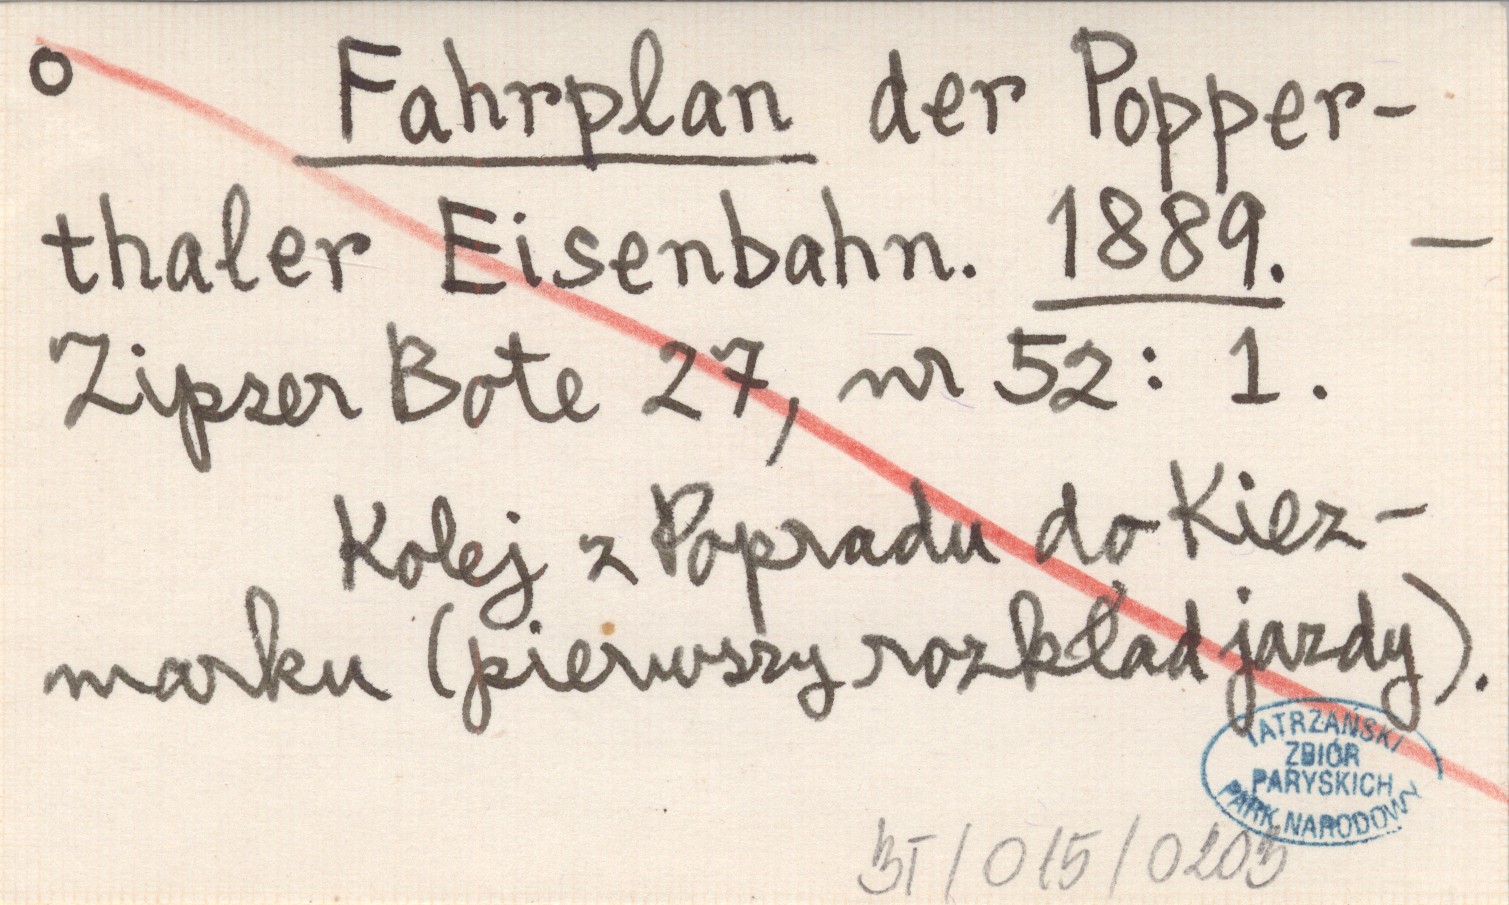 o Fahrplan der Popper-
thaler Eisenbahn. 1889. —
Zipser Bote 27, nr 52: 1.
Kolej z Popradu do Kiez-
marku (pierwszy rozkład jazdy).
TATRZAŃSKI
ZBIÓR
PARYSKICH
PARK NARODOWY
BT/015/0203